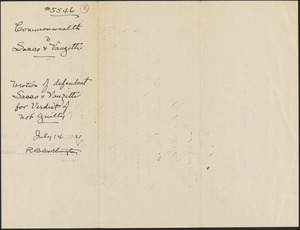 #5546
Commonwealth
v
Sacco & Vanzetti
Motion of defendant
Sacco & Vanzetti
for Verdict of
not Guilty
July 14 21